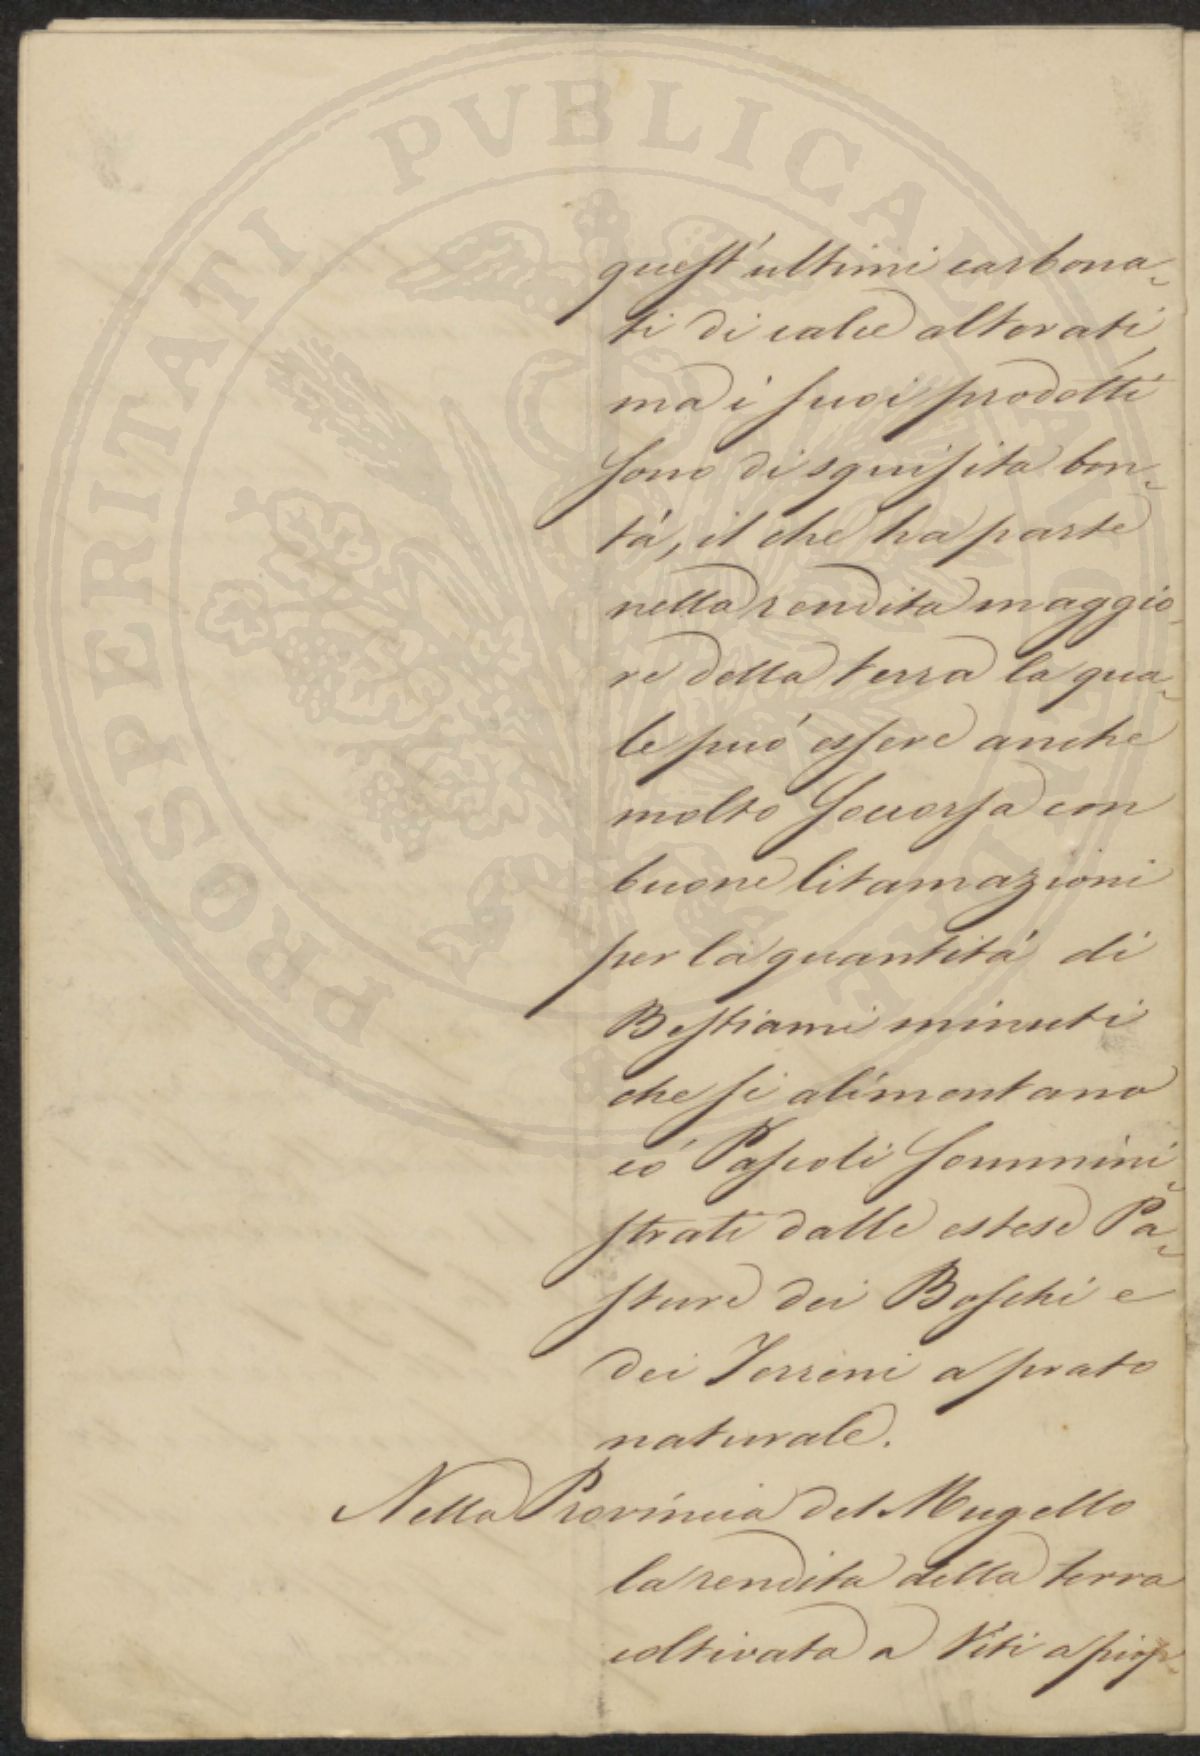 PROSPERITATI PVBLICAE AVGENDAE
quest'ultimi carbona-
ti di calce alterati,
ma i suoi prodotti
sono di squisita bon-
tà, il che ha parte
nella rendita maggio-
re della terra la qua-
le può essere anche
molto soccorsa con
buone litamazioni
per la quantità di
Bestiami minuti
che si alimentano
co' Pascoli sommini-
strati dalle estese Pa-
sture dei Boschi e
dei Terreni a prato
naturale.
Nella Provincia del Mugello
la rendita della terra
coltivata a Viti a piop-